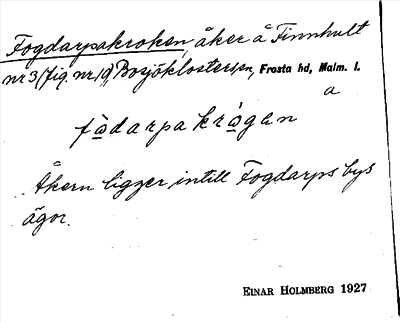 Fogdarpakroken, åker å Finnhult
nr 3 (fig. nr 19), Bosjöklosters sn, Frosta hd, Malm. l.
a
fòdarpakrògan
Åkern ligger intill Fogdarps bys
ägor.
EINAR HOLMBERG 1927